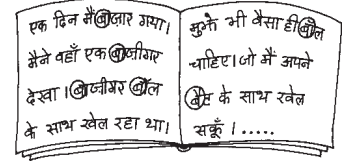 एक दिन मैं बाजार गया।
मैने वहाँ एक बाजीगर
देखा। बाजीगर बॉल
के साथ खेल रहा था।
मुझे भी वैसा ही बॉल
चाहिए। जो मैं अपने
बैट के साथ खेल
सकूँ।.....